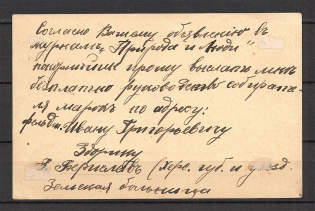 Согласно Вашему объявленію въ
журналѣ „Природа и Люди"
покорнѣйше прошу выслать мнѣ
безплатно руководство собирате-
ля марокъ по адресу:
фельдш. Ивану Григорьевичу
Зборину
Бериславъ (Хер. губ. и уѣзд.
Земская больница